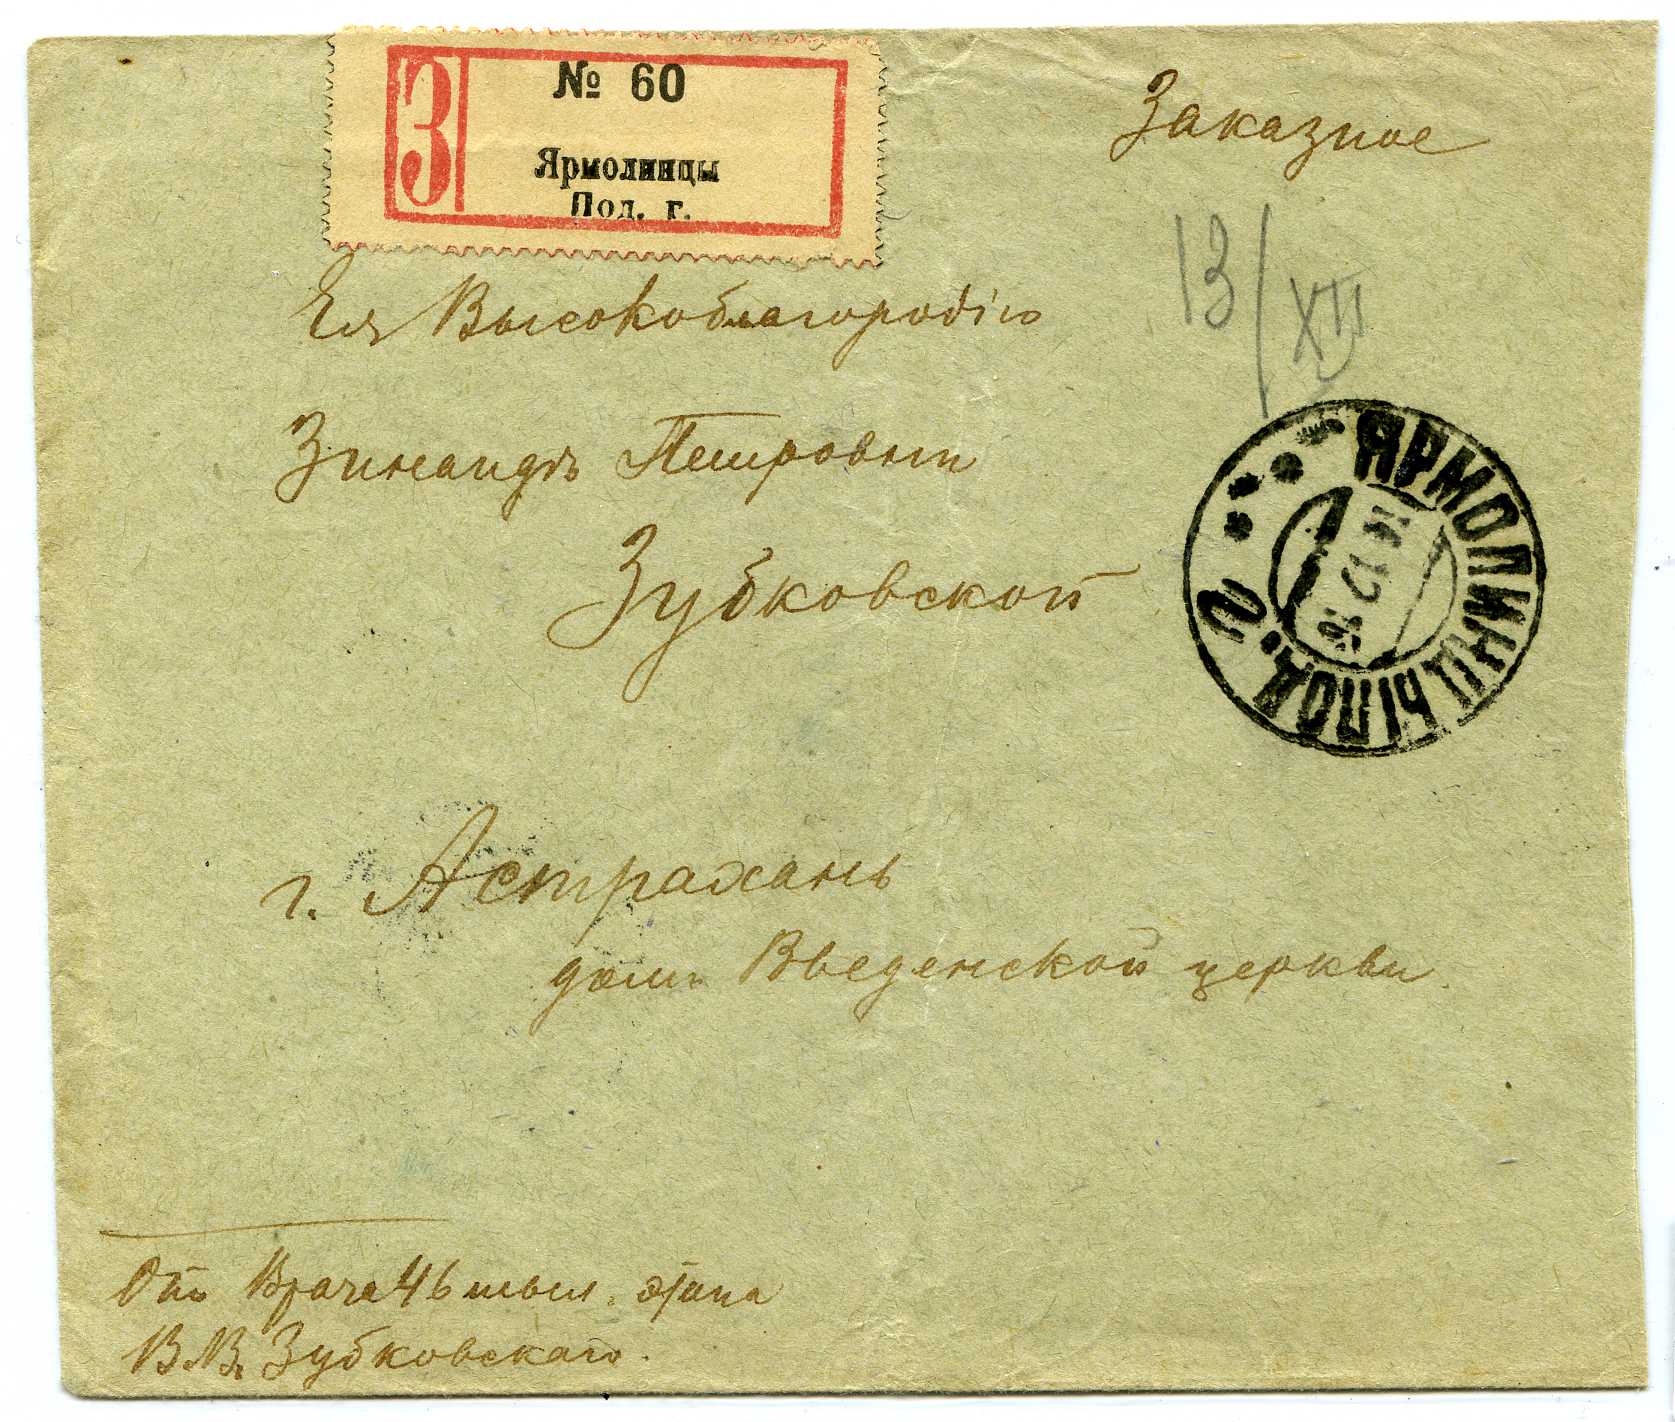 З
№ 60
Ярмолинцы
Под. г.
Заказное
Ея Высокоблагородію
13/XII
Зинаидѣ Петровнѣ
Зубковской
ЯРМОЛИНЦЫ ПОД. Г.
12 16
г. Астрахань
домъ Введенской церкви
Отъ Врача 46 тыл. этапа
В.В. Зубковскаго.